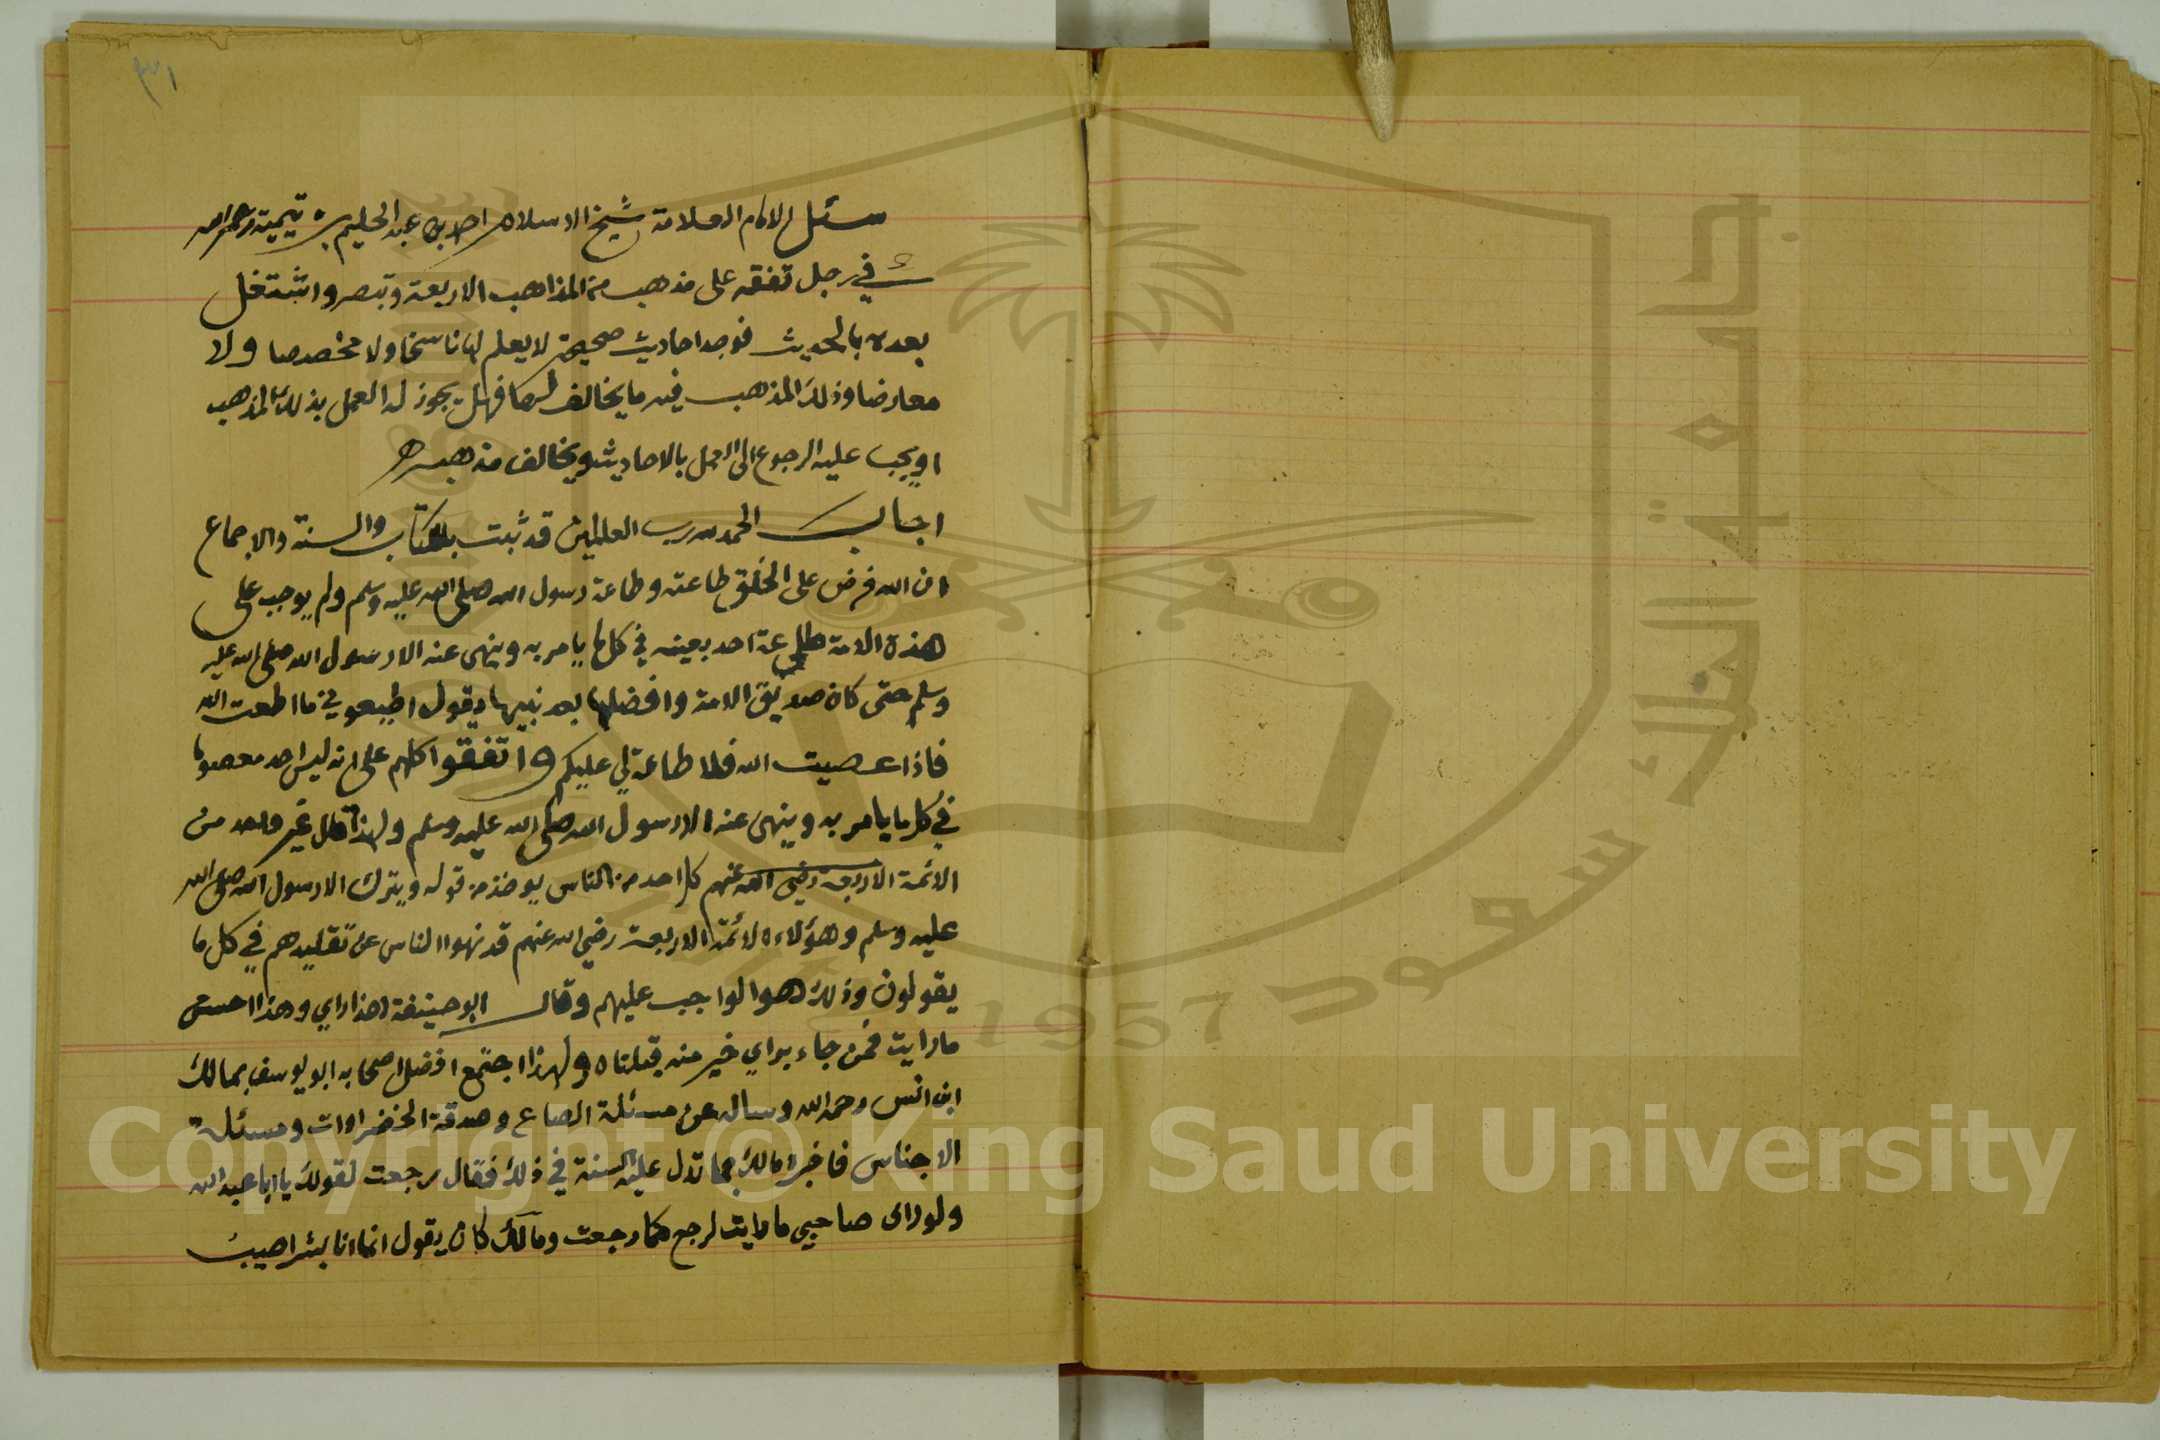 ٣١
سئل الامام العلامة شيخ الاسلام احمد بن عبد الحليم بن تيمية رحمه الله
في رجل تفقه على مذهب من المذاهب الاربعة وتبصر واشتغل
بعده بالحديث فوجد احاديث صحيحة لا يعلم لها ناسخا ولا مخصصا ولا
معارضا وذلك المذهب فيه ما يخالف لها فهل يجوز له العمل بذلك المذهب
او يجب عليه الرجوع الى العمل بالاحاديث ويخالف مذهبه
اجاب الحمد لله رب العلمين قد ثبت بالكتاب والسنة والاجماع
ان الله فرض على الخلق طاعته وطاعة رسول الله صلى الله عليه وسلم ولم يوجب على
هذه الامة طاعة احد بعينه في كل ما يامر به وينهى عنه الا رسول الله صلى الله عليه
وسلم حتى كان صديق الامة وافضلها بعد نبيها يقول اطيعوني ما اطعت الله
فاذا عصيت الله فلا طاعة لي عليكم واتفقوا كلهم على انه ليس احد معصوما
في كل ما يامر به وينهى عنه الا رسول الله صلى الله عليه وسلم ولهذا قال غير واحد من
الائمة الاربعة رضي الله عنهم كل احد من الناس يوخذ من قوله ويترك الا رسول الله صلى الله
عليه وسلم وهؤلاء الائمة الاربعة رضي الله عنهم قد نهوا الناس عن تقليدهم في كل ما
يقولون وذلك هو الواجب عليهم وقال ابو حنيفة هذا راي وهذا احسن
ما رايت فمن جاء براي خير منه قبلناه ولهذا اجتمع افضل اصحابه ابو يوسف بمالك
ابن انس رحمه الله وساله عن مسئلة الصاع وصدقة الخضراوات ومسئلة
الاجناس فاخبره مالك بما تدل عليه السنة في ذلك فقال رجعت لقولك يا ابا عبد الله
ولو راى صاحبي ما رايت لرجع كما رجعت ومالك كان يقول انما انا بشر اصيب
جامعة الملك سعود
1957
Copyright © King Saud University